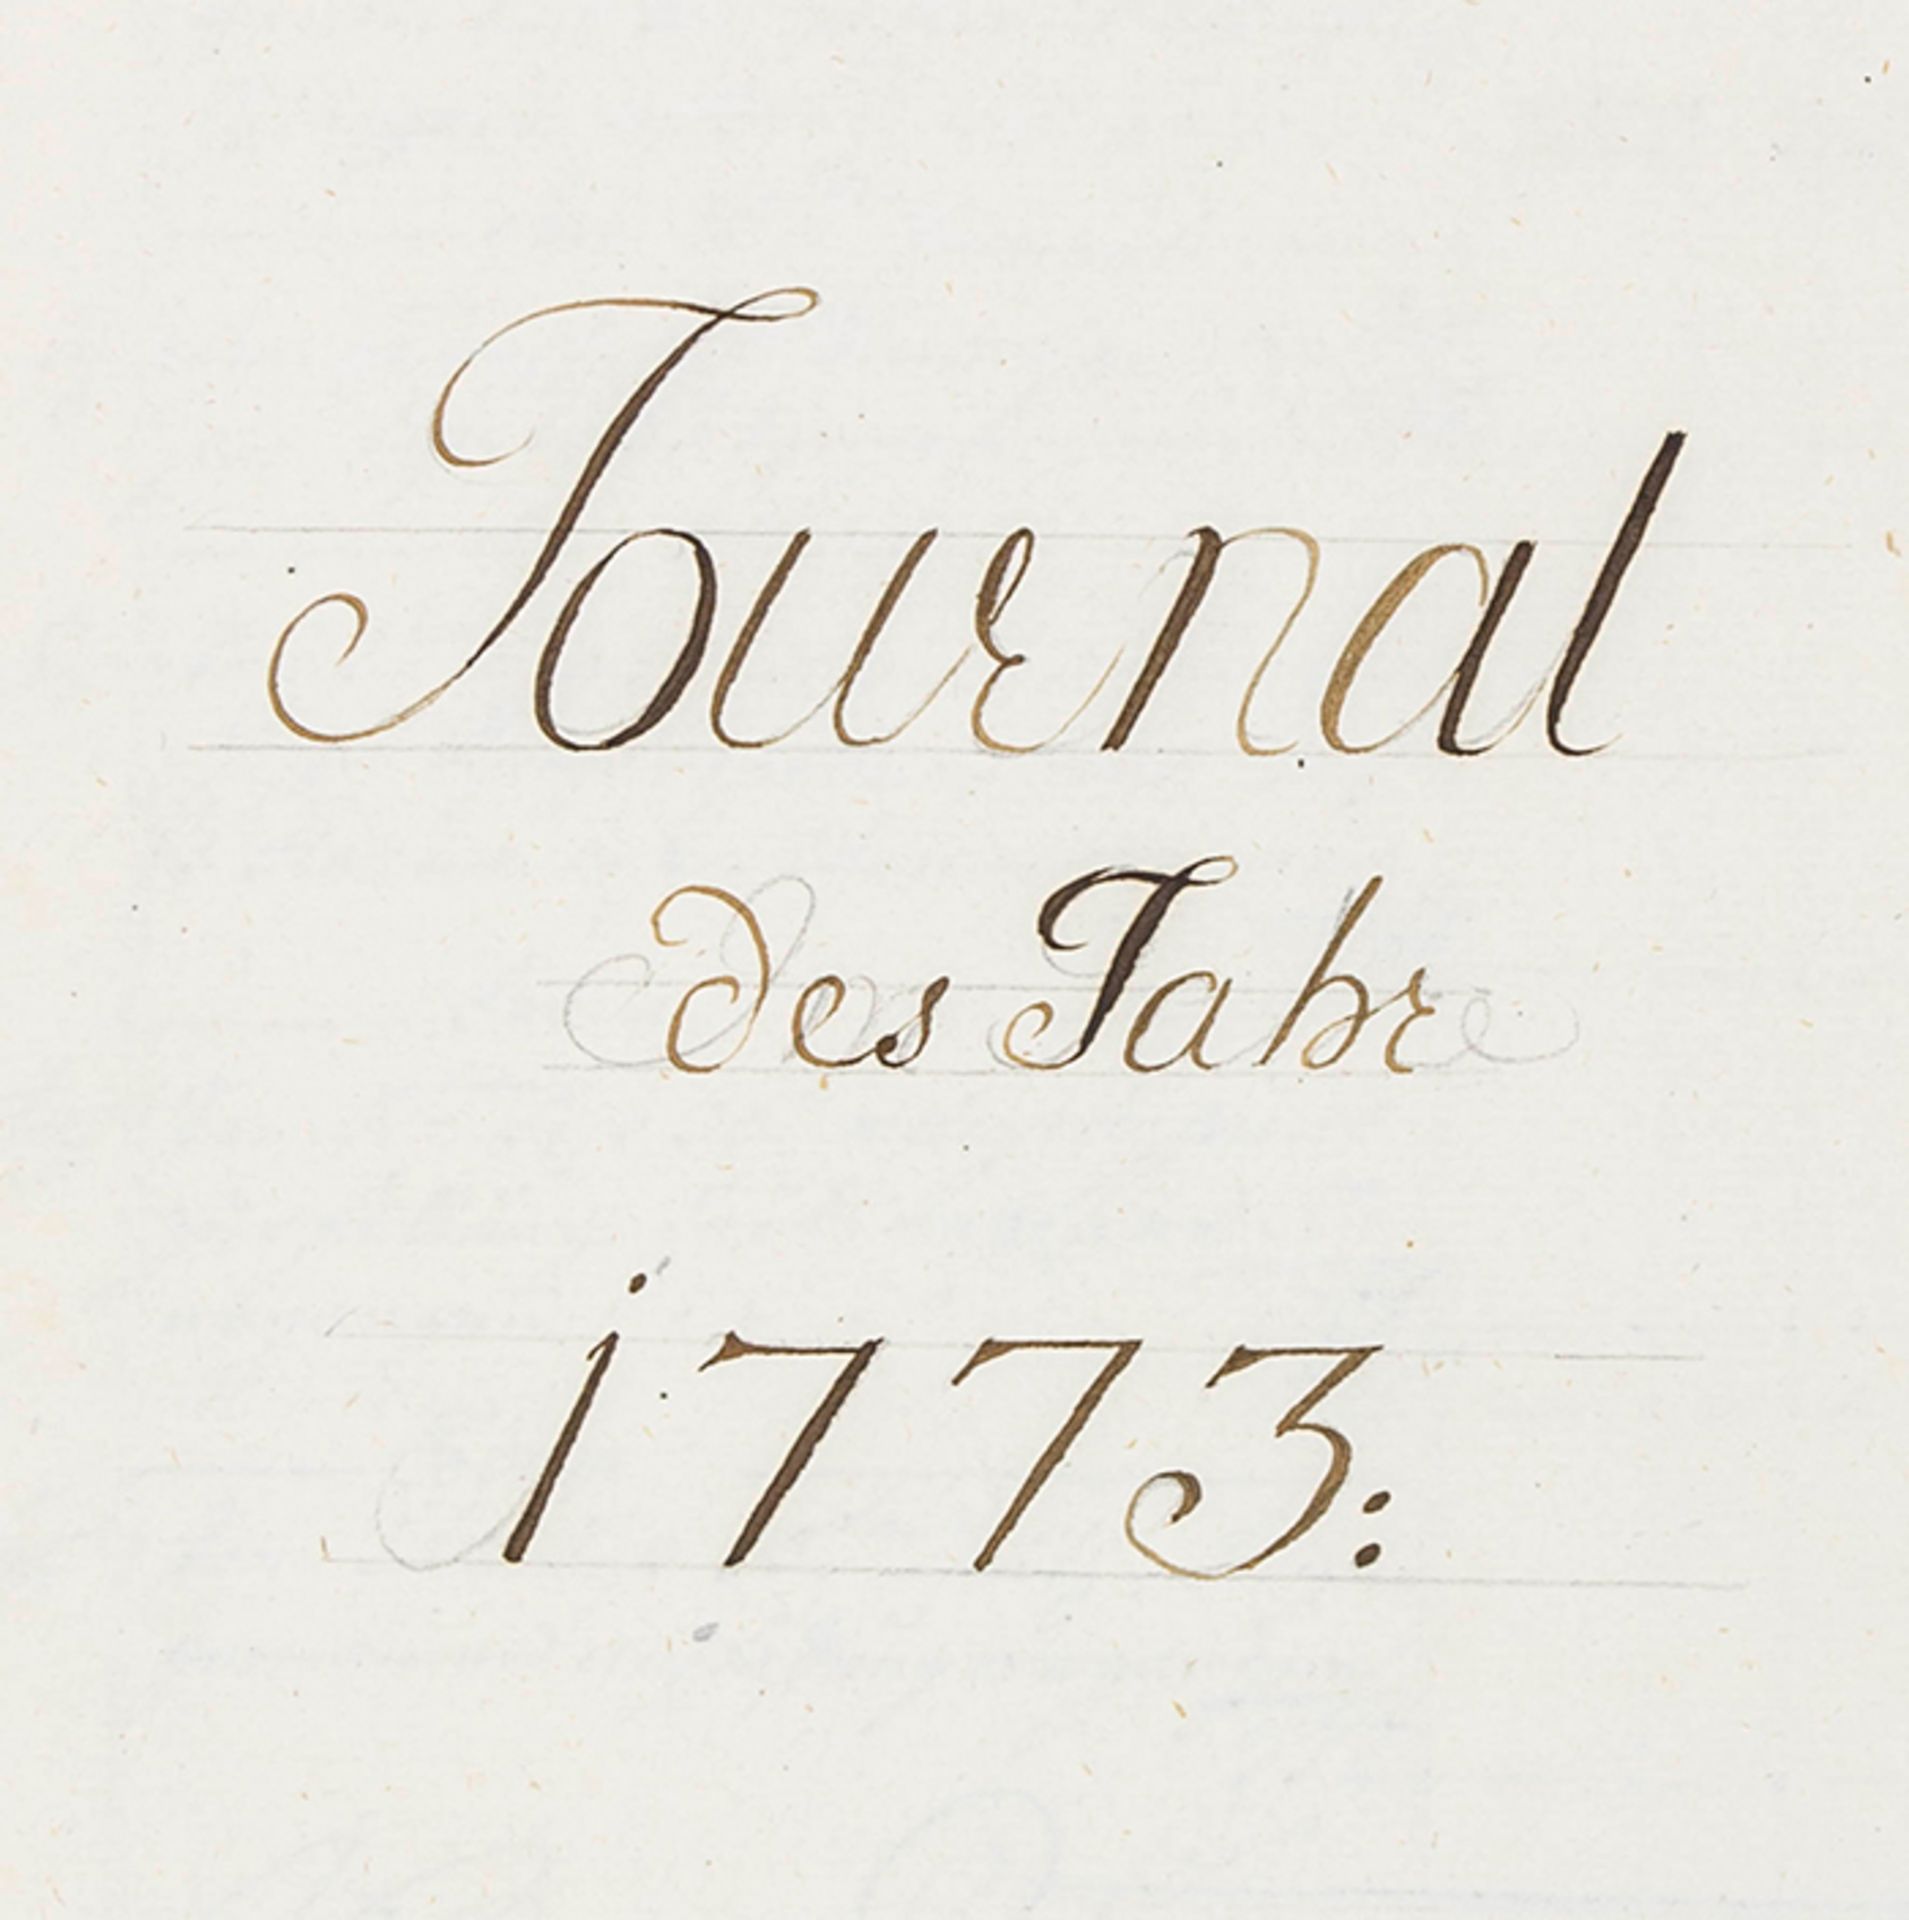 Journal
des Jahr
1773: